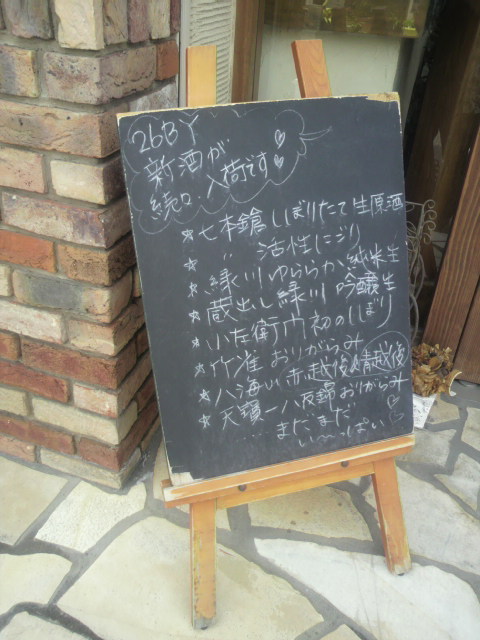 26BY
新酒が
続々入荷です♡♡
☆七本鎗しぼりたて生原酒
☆〃 活性にごり
☆緑川ゆららか純米生
☆蔵出し緑川吟醸生
☆小左衛門初のしぼり
☆竹雀おりがらみ
☆八海山赤越後&青越後
☆天寶一八反錦おりがらみ
まだまだ
い〜っぱい♡♡